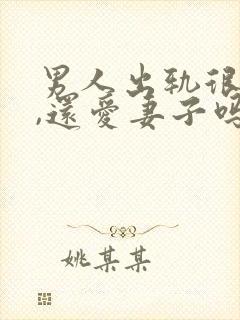 男人出轨很
,还爱妻子吗
姚某某